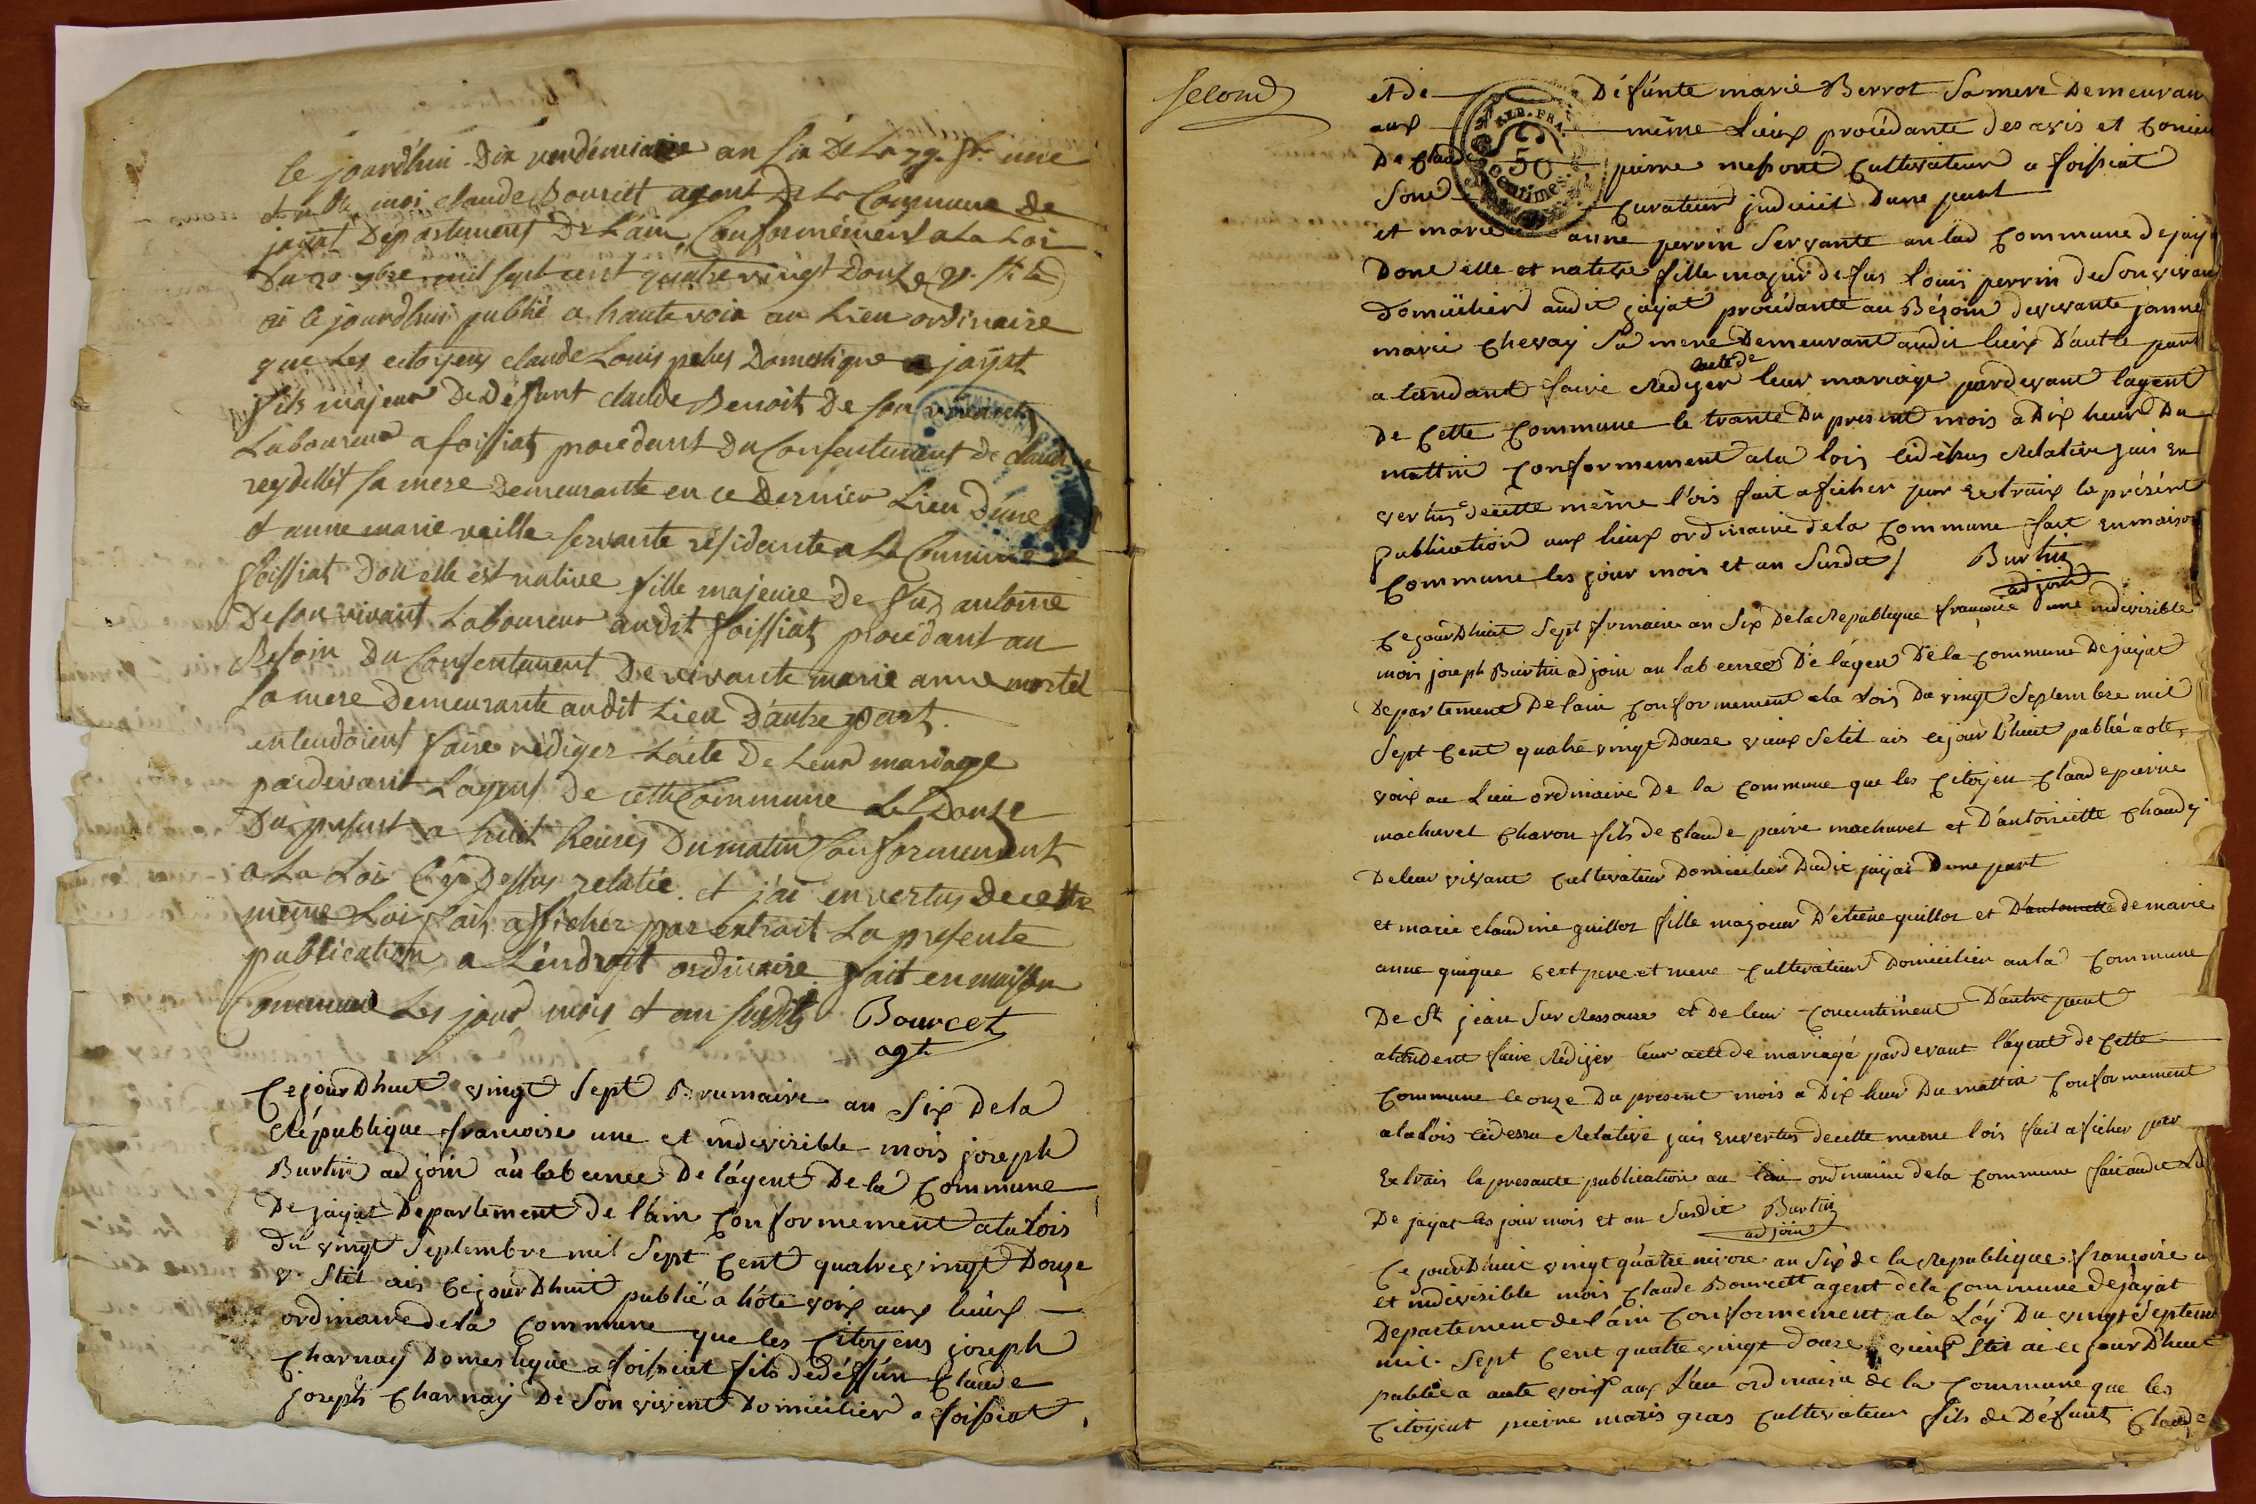 ce jourd'hui dix vendémiaire an six De La rep. fr. une
moi claude Bourcet agent De La Commune de
jayat Departement De L'ain, Conformément a La Loi
Du 20 7bre mil sept cent quatre vingt Douze (v. st.)
ai ce jourd'hui publié a haute voix au Lieu ordinaire
que Les citoyens claude Louis Domestique a jayat
fils majeur De Défunt claude Benoit De son vivant
Laboureur a foissiat procedant Du Consentement de
reydellet sa mere Demeurante en ce Dernier Lieu D'une
& anne marie veille servante résidante a La Commune de
foissiat Dou elle est native fille majeure De fus antoine
De son vivant Laboureur audit foissiat procedant au
Besoin Du Consentement De vivante marie anne mortel
sa mere Demeurante audit Lieu D'autre part.
entendoient faire rediger L'acte De Leur mariage
pardevant L'agent De cette Commune Le Douze
Du present a huit heures Du matin Conformement
a La Loi Cy Dessus relatée. et j'ai en vertus de cette
même Loi fait afficher par extrait La presente
publication a L'endroit ordinaire. fait en maison
Commune Les jour mois & an susdits Bourcet
agt.
Cejourdhuit vingt sept Brumaire an Six Dela
République francoise une et indivisible mois joseph
Burtin adjoin au labcence De lágent De la Commune
De jayat Departement de l'ain Conformement ala lois
du vingt Septembre mil Sept Cent quatrevingt Douze
v. Stil ais Cejourdhuit publié a hôte voix aux lieux
ordinaire dela Commune que les Citoyens joseph
Charnay Domestique a foissiat fils dedéffún Claude
joseph Charnay De Son vivent Domicilier a foissiat
second
et de Défúnte marie Berrot Sa mere Demeuran
aux même Lieux procédante des avis et
De Claude pierre mepont Cultivateur a foissiat
Son Curateur judiciit Dune part
et marie anne perrin Servante au lad Commune dejay
Done elle et native fille majur defus louis perrin deSonvivan
Domicilier audit jayat procédante au Bésoin devivante janne
marie Chevay Sa mere Demeurant audit lieux D'autte part
acte de
atandant faire Redizer leur mariage pardevant lagent
De Cette Commune le trante Du present mois a Dix heur Du
mattin Conformement ala lois Relative jais en
vertus decette même lóis fait aficher par Extraix la présént
publication aux lieux ordinaire dela Commune fait enmaison
Commune les jour mois et an Susdit / Burtin
adjoin
Cejourdhuit Sept frimaire an Six Dela Republique francoise une indivisible
mois joseph Burtin adjoin au labcences De lágen De la Commune Dejayat
Departement De lain Conformement ala lois Du vingt Septembre mil
Sept Cent quatre vingt Douze vieux Setil ais cejourdhuit publié a ote
voix au Lieu ordinaire De la Commune que les Citojen Claude pierre
machuret Charon fils de Claude pairre machuret et D'antoinette Chaudy
Deleur vivant Cultivateur Domicilier Dudit jayat Dune part
et marie claudine guillot fille majoeur D'etiene guillot et D'antoinette de marie
anne guigue Cest pere et mere Cultivateur Domicilier aula Commune
De St jean Sur Ressouse et De leur Concentiment D'autre part
atandent faire Rédijer leur acte de mariagé pardevant l'agent de Cette
Commune le onze Du present mois a Dix heur Du mattin Conformement
ala lois cidessu Relative jais envertus decette meme lois fait aficher par
Extrais la presante publication au lieu ordinaire dela Commune fait audit
De jayat les jour mois et an Susdit Burtin
adjoin
Cejourdhuit vingt quatre nivose an Six de la Republique francoise
et indivisible mois Claude Bourcett agent dela Commune dejayat
Departement del'ain Conformement ala Loy Du vingt Septem
mil Sept Cent quatre vingt douze vieux Stil ai ce jourdhuit
publié a aute voix aux Lieu ordinaire de la Commune que les
Citoyent pierre maris gras Cultivateur fils de Défunt Claude
REP. FRA.
50
centimes.